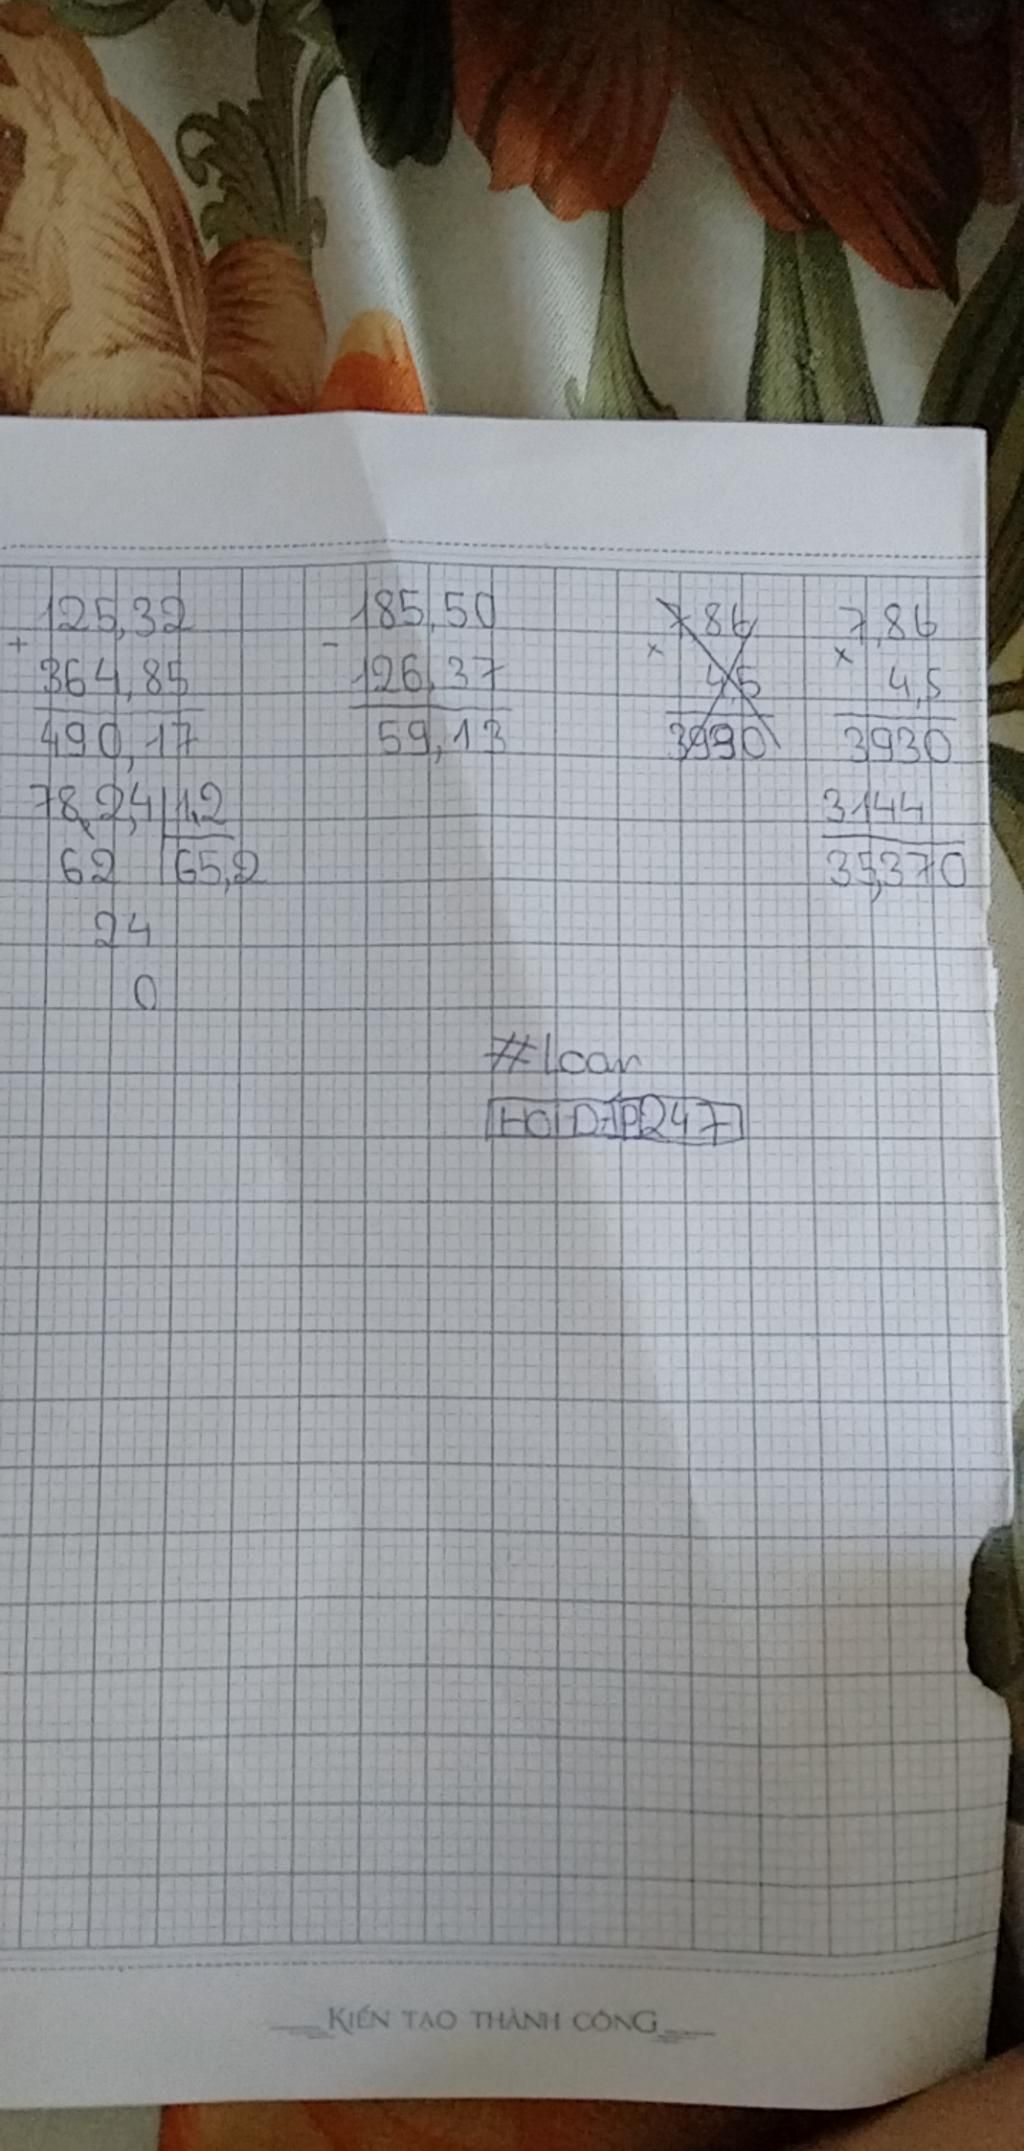 125,32
+
364,85
490,17
185,50
-
126,37
59,13
786
×
4,5
3990
7,86
×
4,5
3930
3144
35,370
78,2,4 1,2
62 65,2
24
0
#Loan
HOIDAP247
KIẾN TẠO THÀNH CÔNG